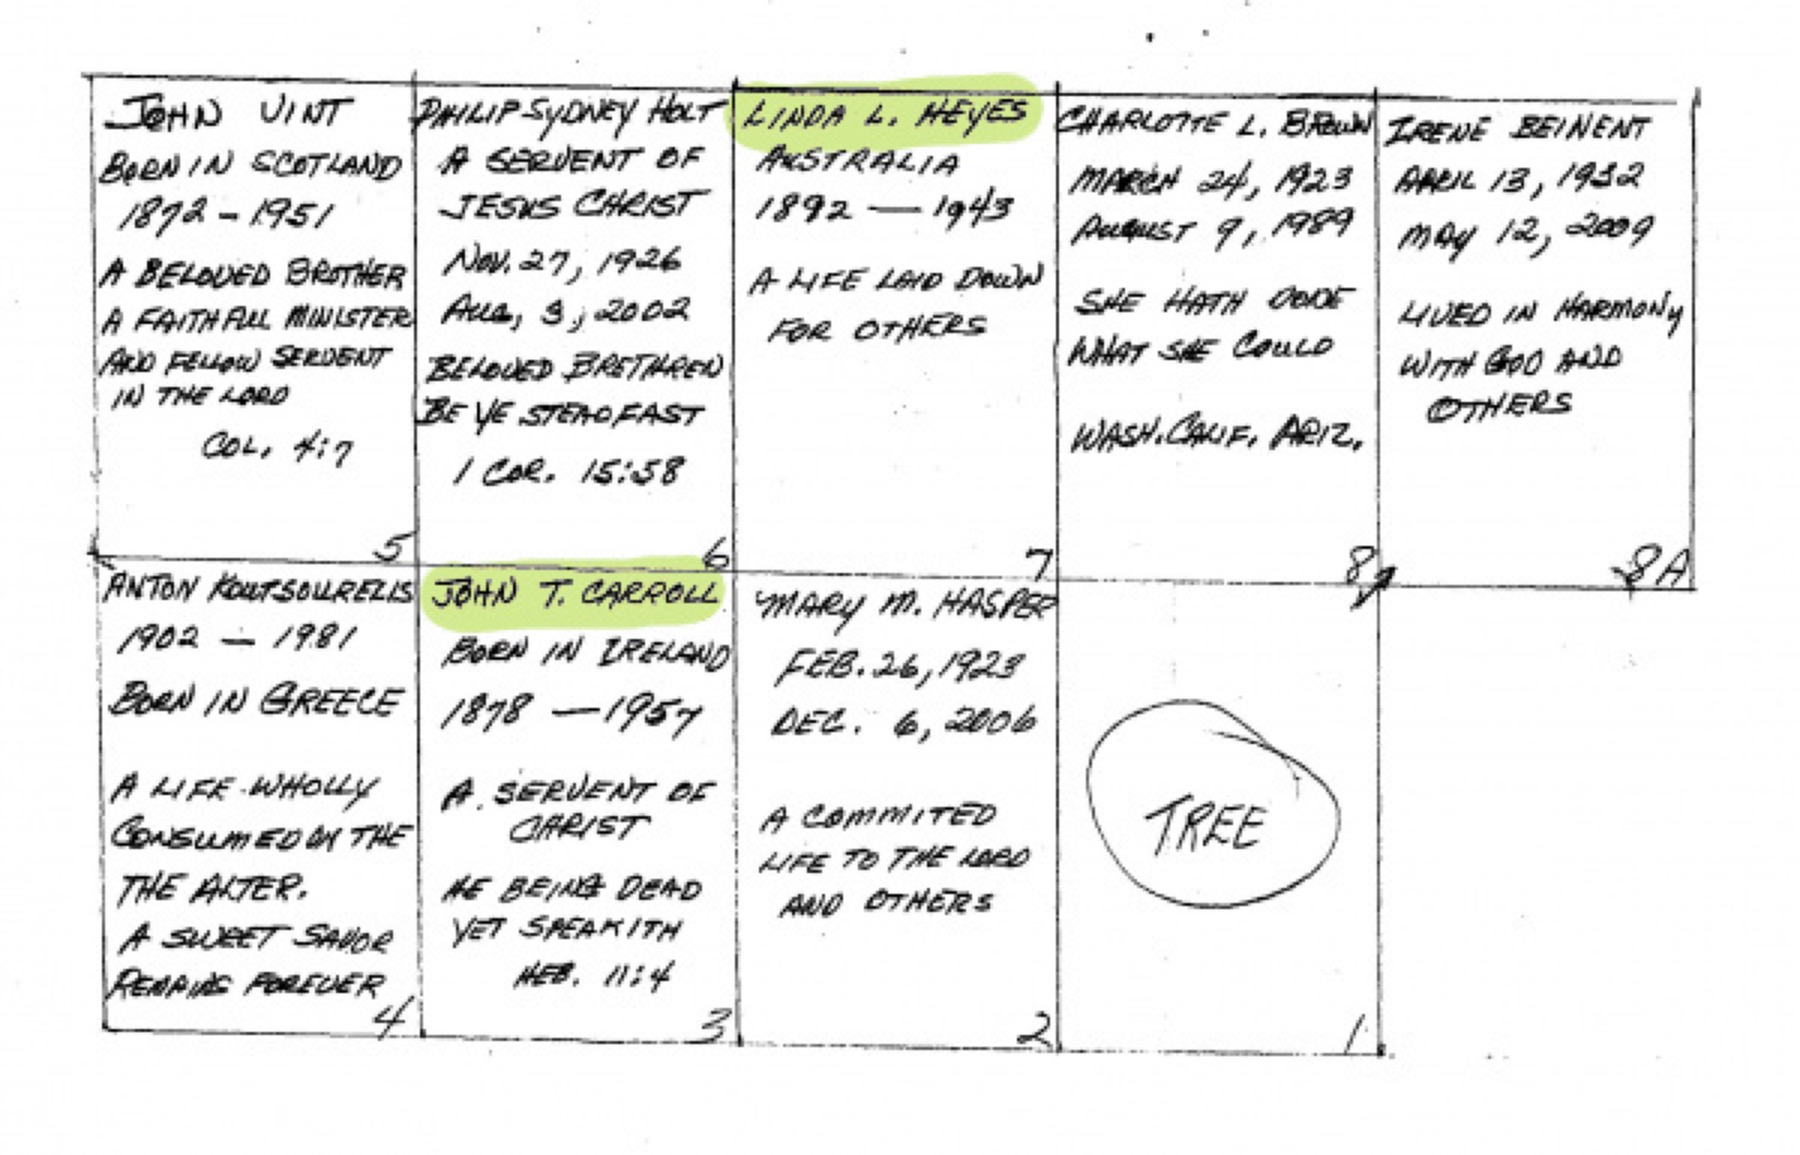 JOHN VINT
BORN IN SCOTLAND
1872 - 1951
A BELOVED BROTHER
A FAITHFULL MINISTER
AND FELLOW SERVENT
IN THE LORD
COL. 4:7
5
PHILIP SYDNEY HOLT
A SERVENT OF
JESUS CHRIST
NOV. 27, 1926
AUG, 3, 2002
BELOVED BRETHREN
BE YE STEADFAST
1 COR. 15:58
6
LINDA L. HEYES
AUSTRALIA
1892 — 1943
A LIFE LAID DOWN
FOR OTHERS
7
CHARLOTTE L. BROWN
MARCH 24, 1923
AUGUST 9, 1989
SHE HATH DONE
WHAT SHE COULD
WASH. CALIF. ARIZ.
8
IRENE BEINENT
APRIL 13, 1932
MAY 12, 2009
LIVED IN HARMONY
WITH GOD AND
OTHERS
8A
ANTON KOUTSOURELIS
1902 — 1981
BORN IN GREECE
A LIFE WHOLLY
CONSUMED ON THE
THE ALTER.
A SWEET SAVOR
REMAINS FOREVER
4
JOHN T. CARROLL
BORN IN IRELAND
1878 — 1957
A SERVENT OF
CHRIST
HE BEING DEAD
YET SPEAKITH
HEB. 11:4
3
MARY M. HASPER
FEB. 26, 1923
DEC. 6, 2006
A COMMITED
LIFE TO THE LORD
AND OTHERS
2
TREE
1